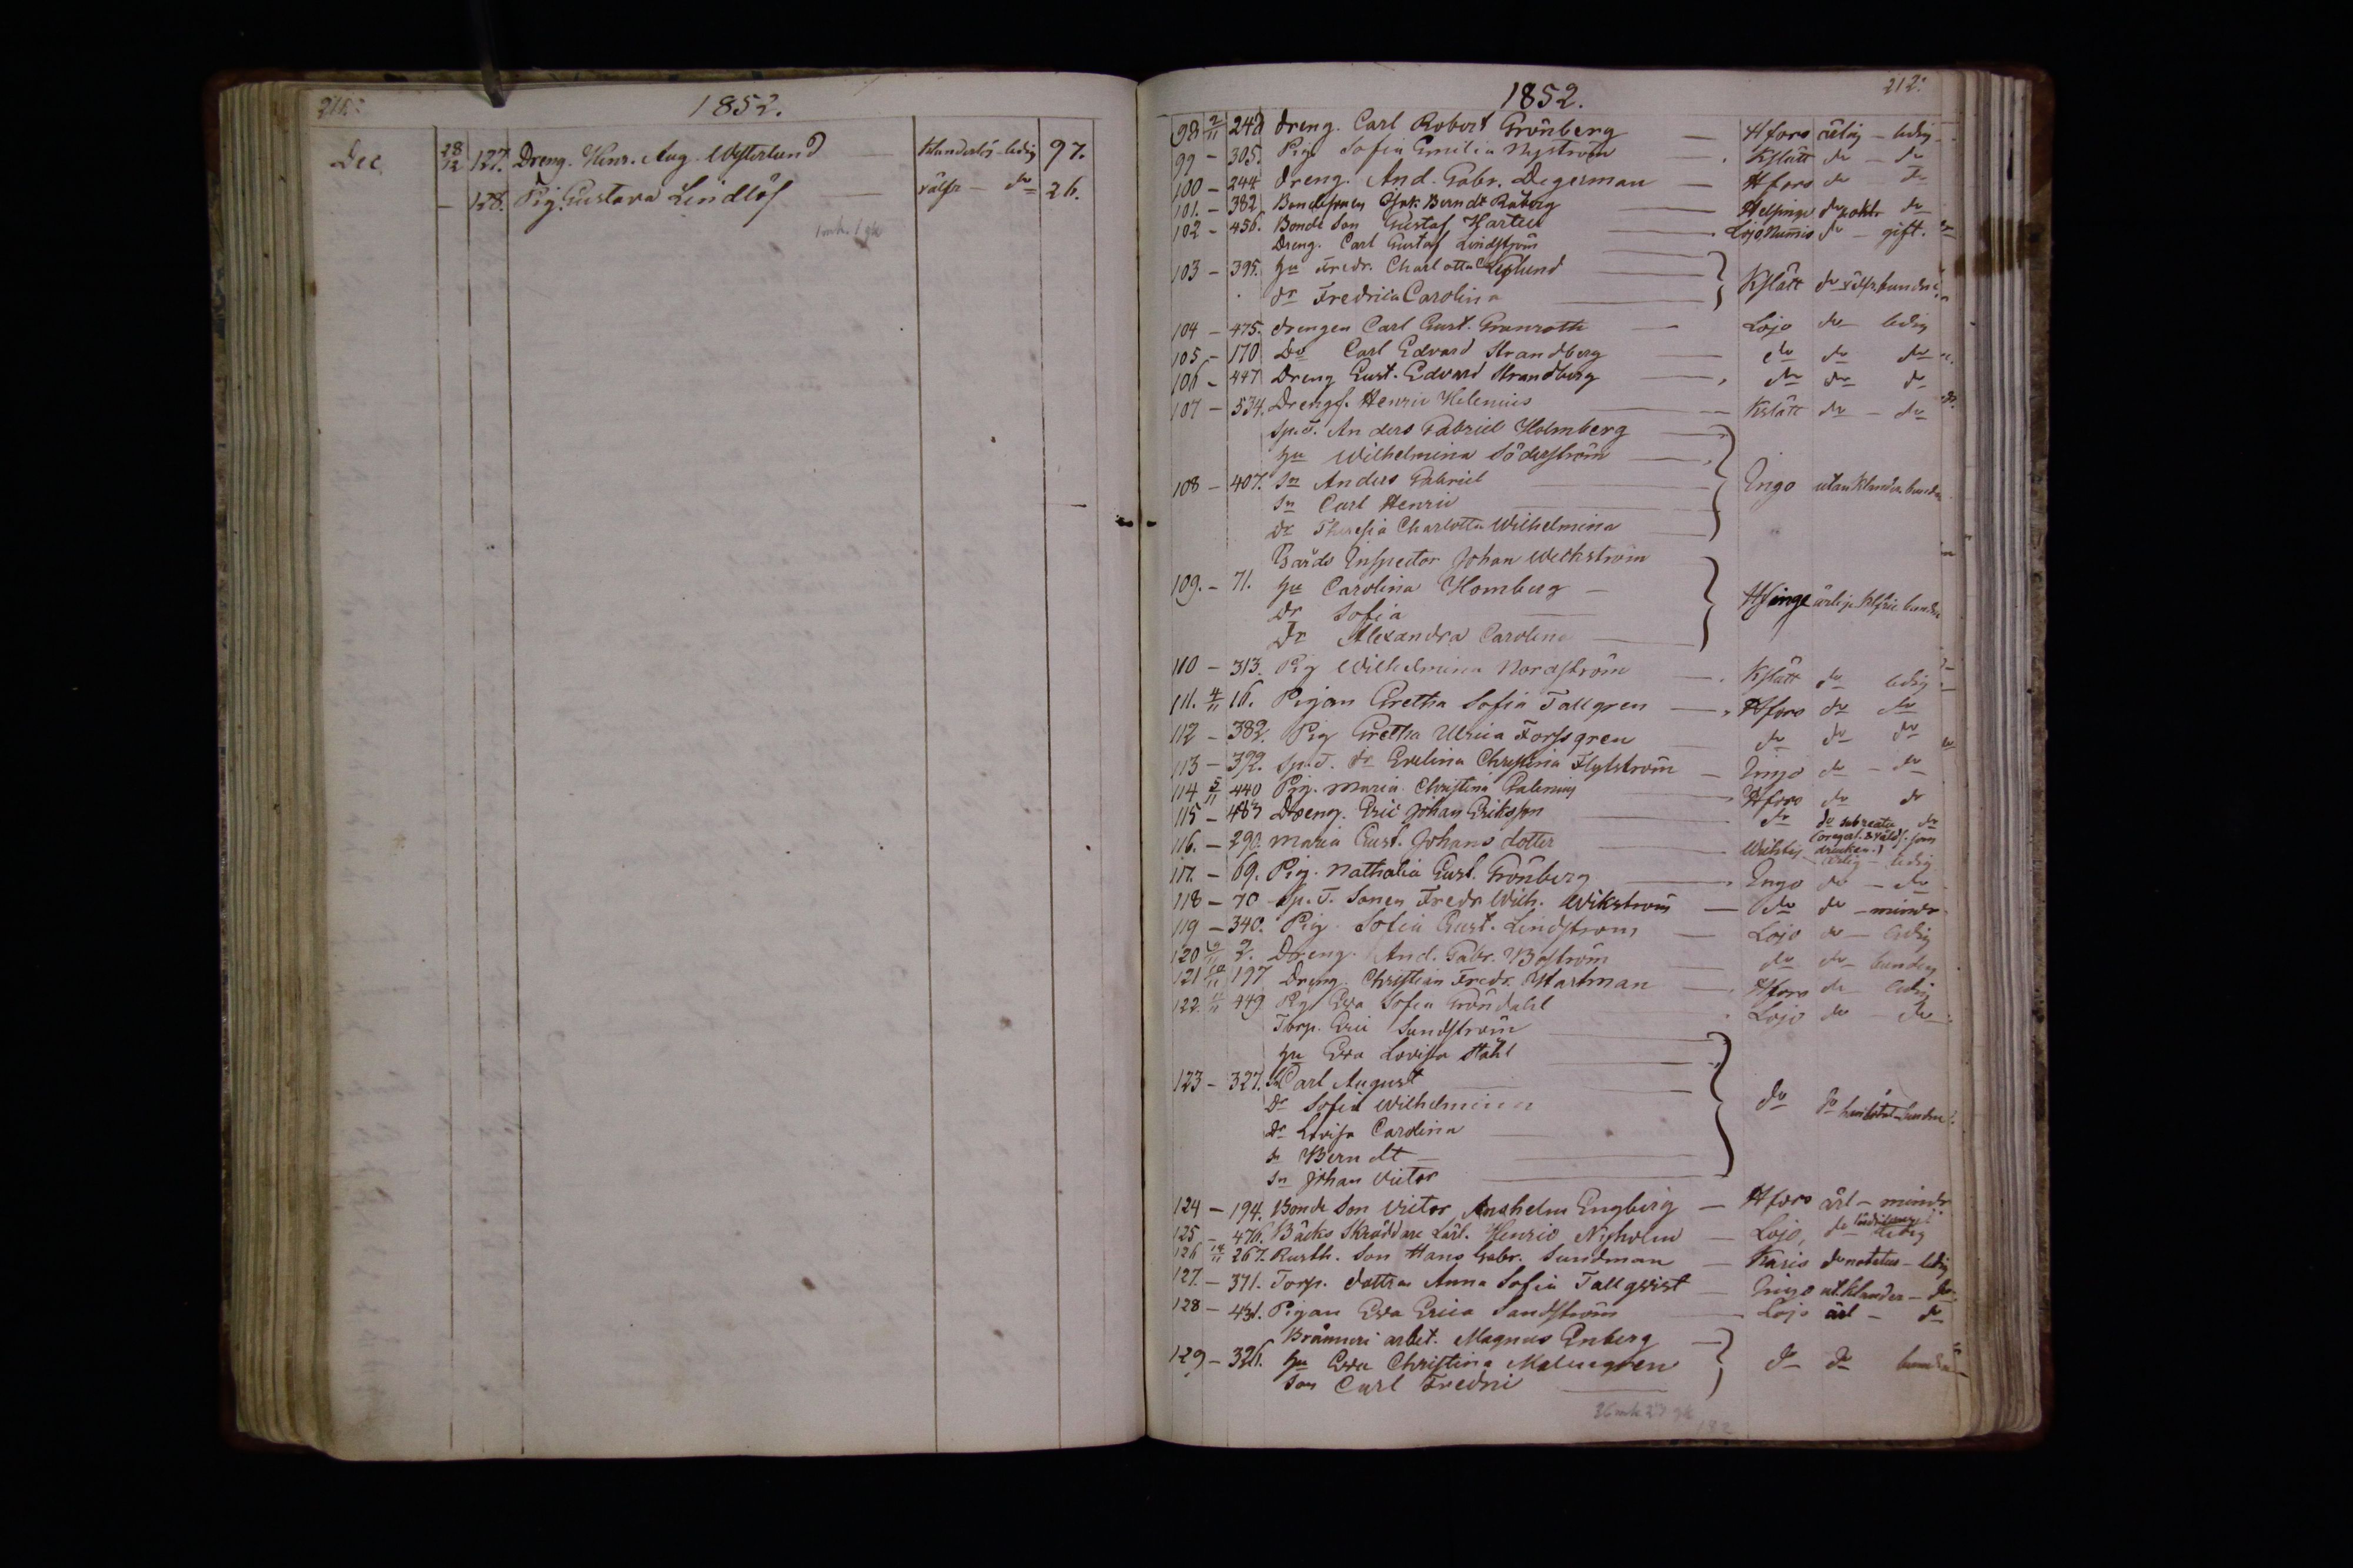 1852.
Dec. 28/12 127. Dreng. Henr. Aug. Westerlund — klanderlös - ledig 97.
— 128. Pig. Gustava Lindlöf — välfr — do 26.
1 mk. 1 qk
1852. 212.
98 2/11 242 Dreng. Carl Robert Grönberg — Hfors ärlig — ledig
99 — 305. Pig. Sofia Emilia Nyström — Kslätt do — do
100 — 244 Dreng. And. Gabr. Degerman — Hfors do do
101. — 382 Berndt — Helsinge do do
102 — 456. Bonde Son Gustaf — Lojo Nummis do — gift.
Dreng. Carl Gustaf Lindström
103 — 395. hu Fredr. Charlotta
dr Fredrica Carolina — Kslätt do
104 — 475. drengen Carl Gust. Granroth — Lojo do ledig
105 — 170 Do Carl Edvard Strandberg — do do do
106 — 447 Dreng Gust. Edvard Strandberg — do do do
107 — 534. Drengs. Henric Helenius — Kslätt do — do
Sp. T. Anders Gabriel Holmberg
hu Wilhelmina Söderström
108 — 407. Sn Anders Gabriel — Ingo utan klander
Sn Carl Henric
Dr Theresia Charlotta Wilhelmina
Gårds Inspector Johan Weckström
109. — 71. hu Carolina Homberg — Hfinge
Dr Sofia
Dr Alexandra Carolina
110 — 313. Pig Wilhelmina Nordström — Kslätt do ledig
111. 4/11 16. Pigan Gretha Sofia Tallgren — Hfors do do
112 — 382. Pig Gretha Ulrica Forssgren do do do
113 — 392. Sp. T. dr Evelina Christina — Ingo do — do
114 5/11 440 Pig. Maria Christina — Hfors do do
115 — 483 Dreng. Eric Johan Eriksson — do do do
116. — 290. Maria Gust. Johans dotter — ärlig — ledig
117. — 69. Pig. Nathalia Gust. Grönberg — Ingo do — do
118 — 70 Sp. T. Sonen Fredr. Wilh. Wikström — do do — mindr
119 — 340. Pig. Sofia Gust. Lindström — Lojo do — ledig
120 9/11 2. Dreng. And. Gabr. Boström — do do bunden
121 197 Dreng Christian Fredr. Hartman — Hfors do ledig
122 449 Pig Eva Sofia Gröndahl Lojo do — do
Torp. Eric Sundström
hu Eva Lovisa Ståhl
123 — 327. Sn Carl August — do do
Dr Sofia Wilhelmina
Dr Lovisa Carolina
Sn Berndt
Sn Johan Victor
124 — 194. Bonde Son Victor Anshelm Engberg — Hfors ärl — mindr
125 — 476. Bäcks Skräddare Lärl. Henric Nyholm — Lojo, do ledig
126 14/11 267. Rusth. Son Hans Gabr. Sundman — Karis do — ledig
127. — 371. Torp. dottren Anna Sofia Tallqvist — Ingo ut. klander — do
128 — 431. Pigan Eva Erica Sandström — Lojo ärl — do
Bränneri arbet. Magnus Enberg
129 — 326. hu Eva Christina Malmgren — do do
Son Carl Fredric
36 mk 27 qk
182